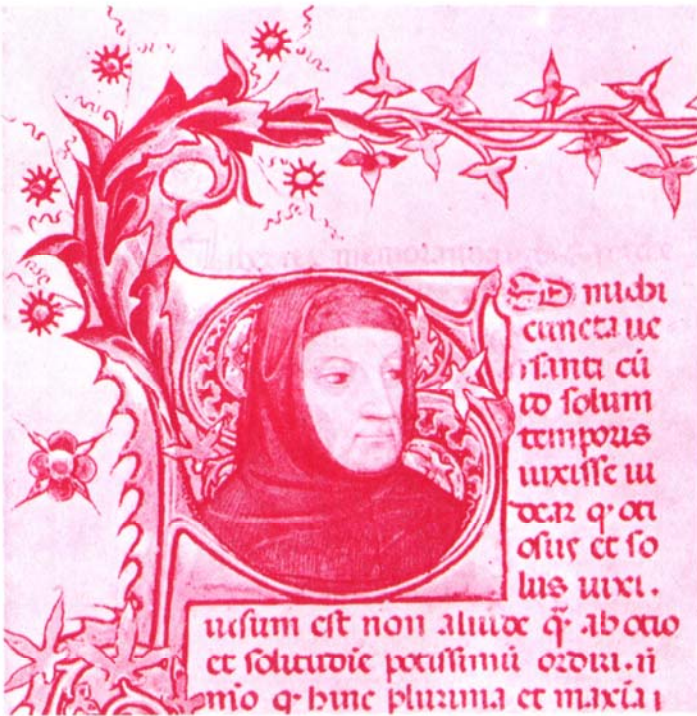 ED michi
cuncta ue
rsanti cū
id solum
temporis
uixisse ui
dear q otiosus et so
lus uixi.
uisum est non aliude q̄ ab otio
et solitudīe potissimū ordiri. ii
mo q hinc plurima et maxīa